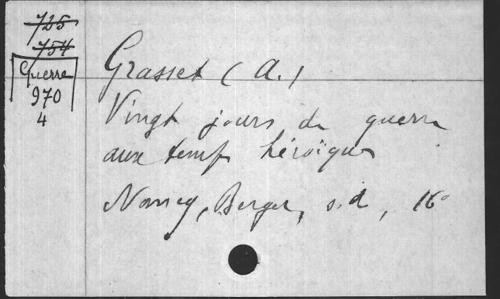 725
754
Guerre
970
4
Grasset (A.)
Vingt jours de guerre
aux temps héroïques
Nancy, Berger, s.d, 16°